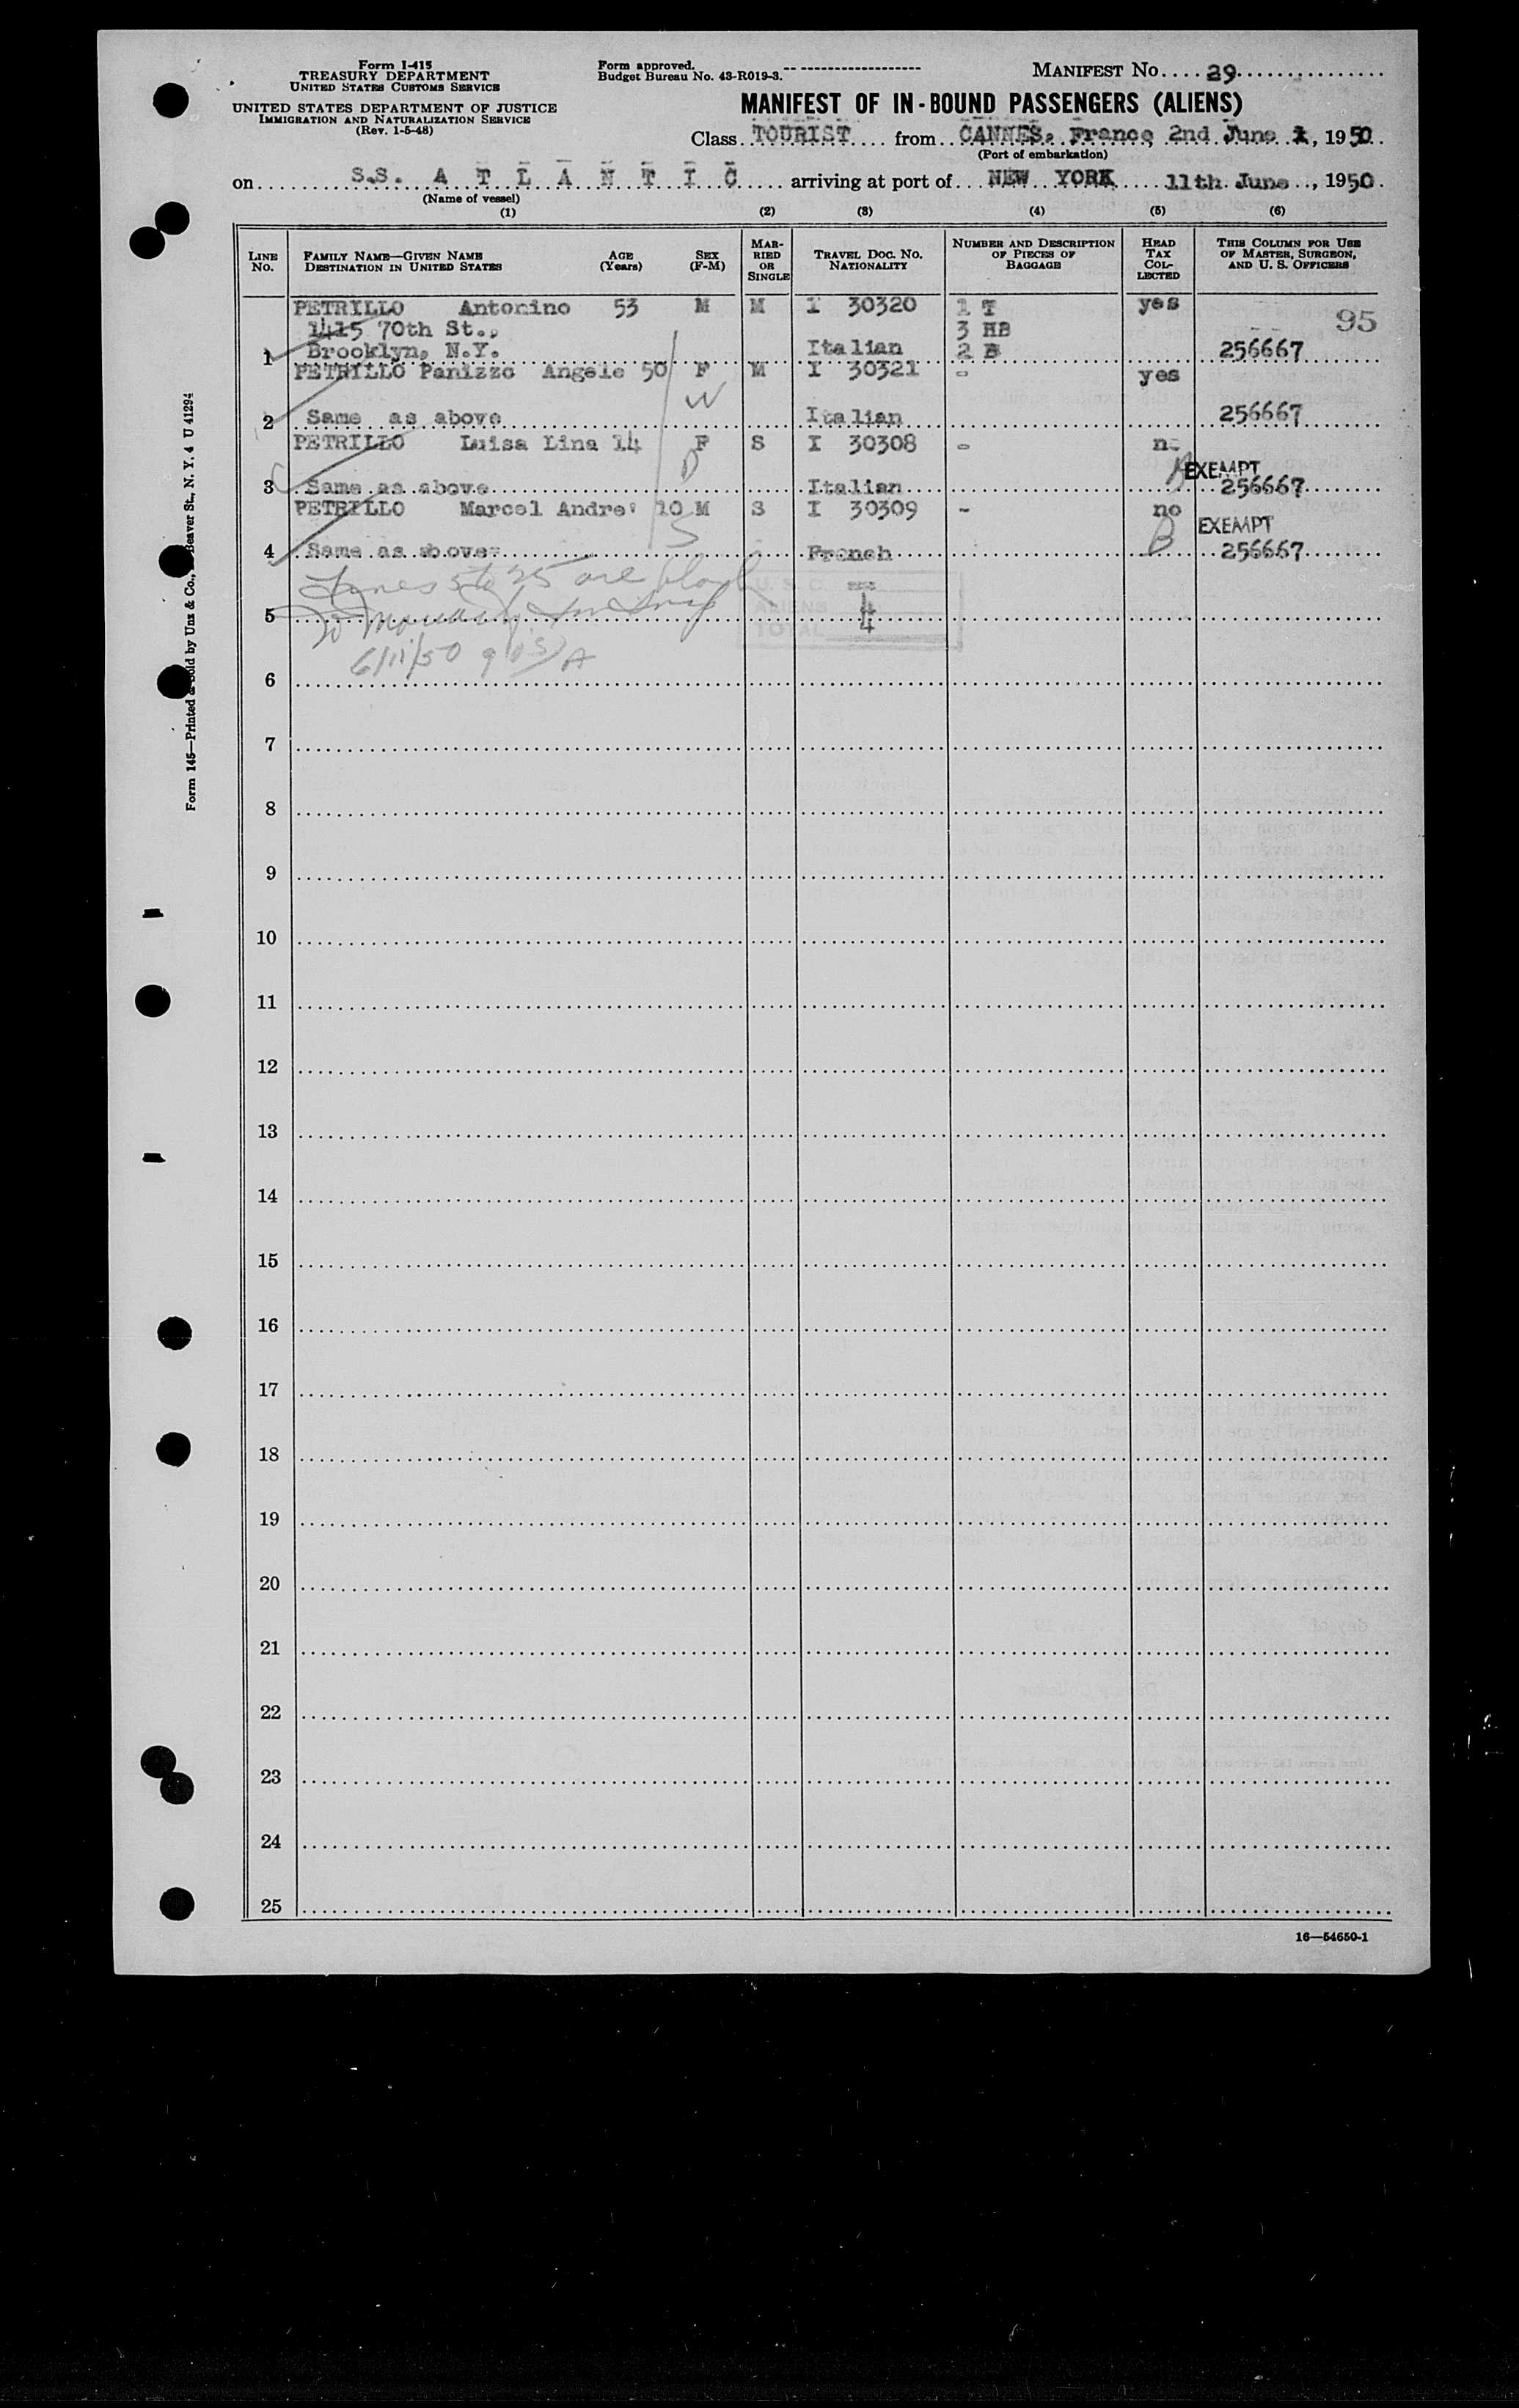 Form I-415
TREASURY DEPARTMENT
UNITED STATES CUSTOMS SERVICE
UNITED STATES DEPARTMENT OF JUSTICE
IMMIGRATION AND NATURALIZATION SERVICE
(Rev. 1-5-48)
Form approved.
Budget Bureau No. 43-R019-3.
MANIFEST No. 29
MANIFEST OF IN-BOUND PASSENGERS (ALIENS)
Class TOURIST from CANNES, France, 2nd June, 1950
(Port of embarkation)
on S.S. A T L A N T I C arriving at port of NEW YORK 11th June, 1950
(Name of vessel)
(1) (2) (3) (4) (5) (6)
LINE No. FAMILY NAME—GIVEN NAME DESTINATION IN UNITED STATES AGE (Years) SEX (F-M) MARRIED OR SINGLE TRAVEL DOC. NO. NATIONALITY NUMBER AND DESCRIPTION OF PIECES OF BAGGAGE HEAD TAX COLLECTED THIS COLUMN FOR USE OF MASTER, SURGEON, AND U. S. OFFICERS
PETRILLO Antonino 53 M M I 30320 1 T yes
1415 70th St., 3 HB 95
1 Brooklyn, N.Y. Italian 2 B 256667
PETRILLO Panizzo Angele 50 F M I 30321 - yes
W
2 Same as above Italian 256667
PETRILLO Luisa Lina 14 F S I 30308 - no
D EXEMPT
3 Same as above Italian 256667
PETRILLO Marcel Andre' 10 M S I 30309 - no
S B EXEMPT
4 Same as above French 256667
Lines 5 to 25 are blank
U. S. C. --
ALIENS 4
5
TOTAL 4
6/11/50
6
7
8
9
10
11
12
13
14
15
16
17
18
19
20
21
22
23
24
25
16—54650-1
Form 145—Printed & Sold by Unz & Co., Beaver St., N. Y. 4 U 41294